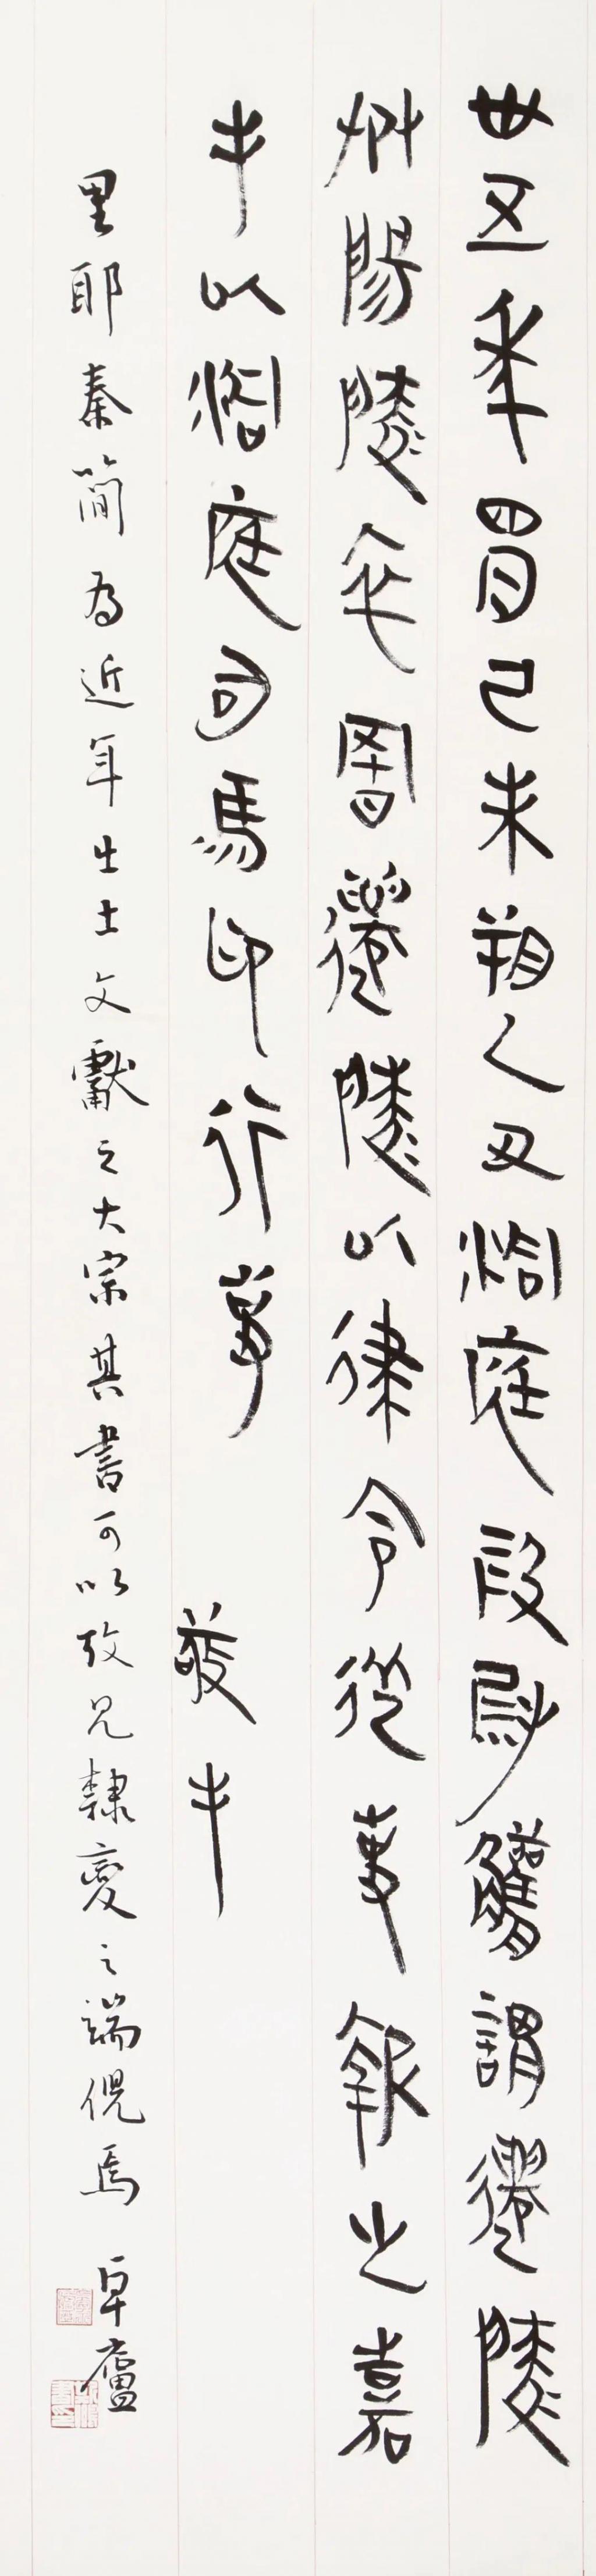 卅五年四月己未朔乙丑洞庭叚尉觿謂遷陵
丞陽陵卒署遷陵以律令從事報之嘉
手以洞庭司馬印行事 敬手
里耶秦簡為近年出土文獻之大宗其書可以考見隸變之端倪焉 草廬